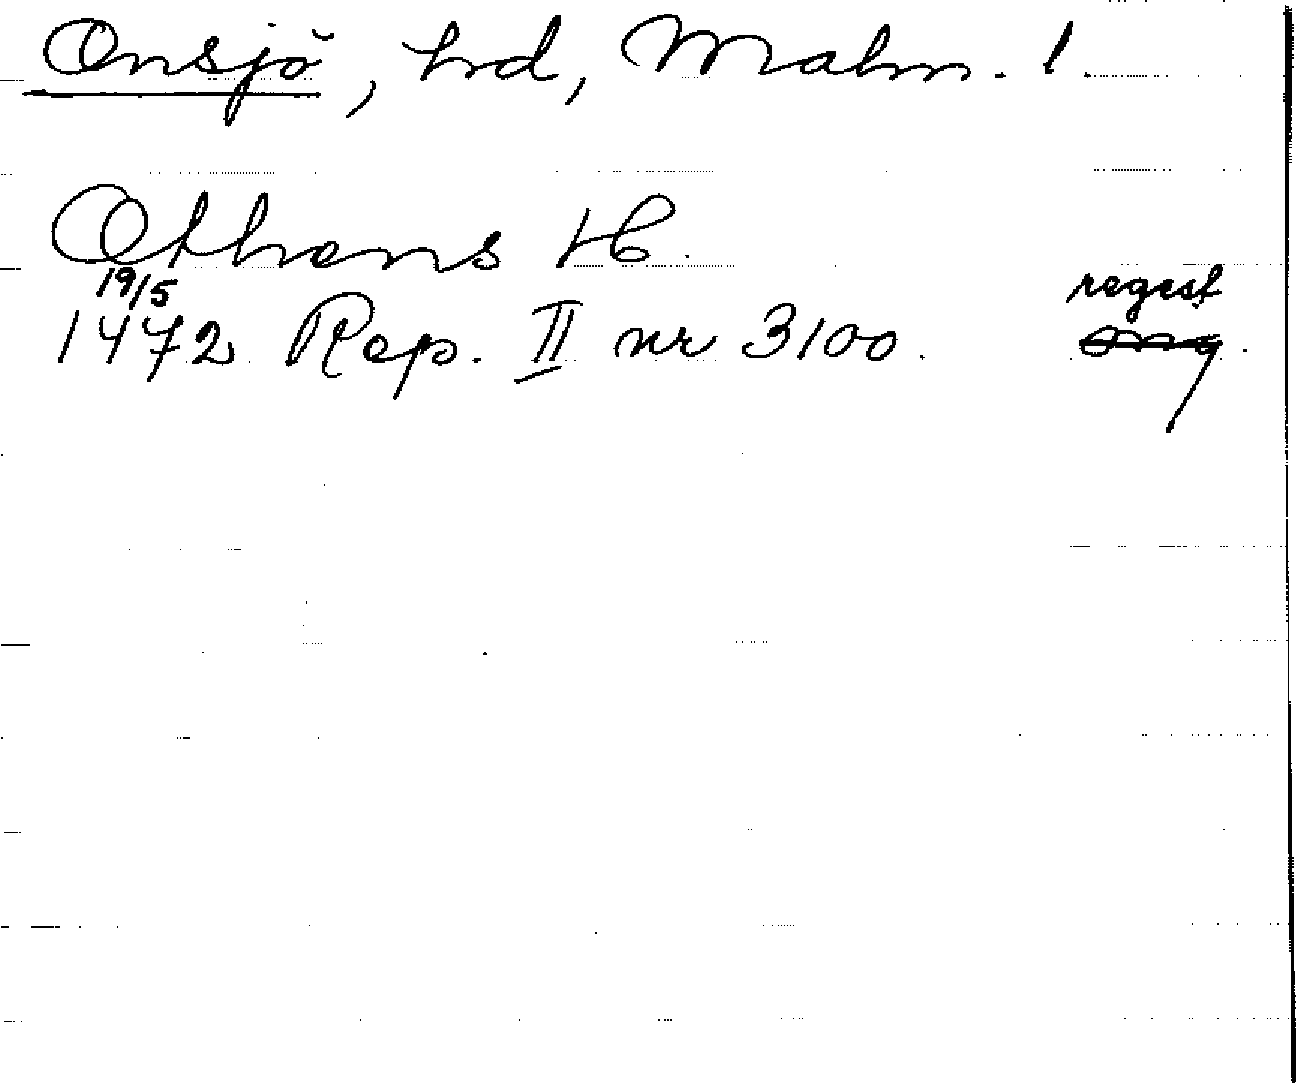 Onsjö, hrd, Malm. l.
Othens H.
19/5 regest
1472 Rep. II nr 3100. omg.